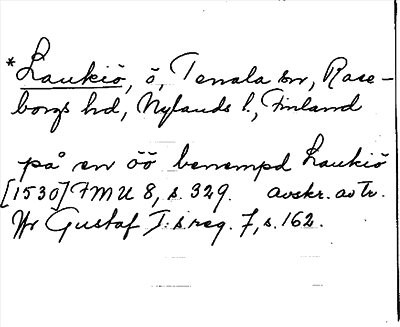 *Laukiö, ö, Tenala sn, Rase-
borgs hd, Nylands l., Finland
på en öö benempd Laukiö
[1530] FMU 8, s. 329. avskr. av tr.
Hr Gustaf I:s reg. 7, s. 162.